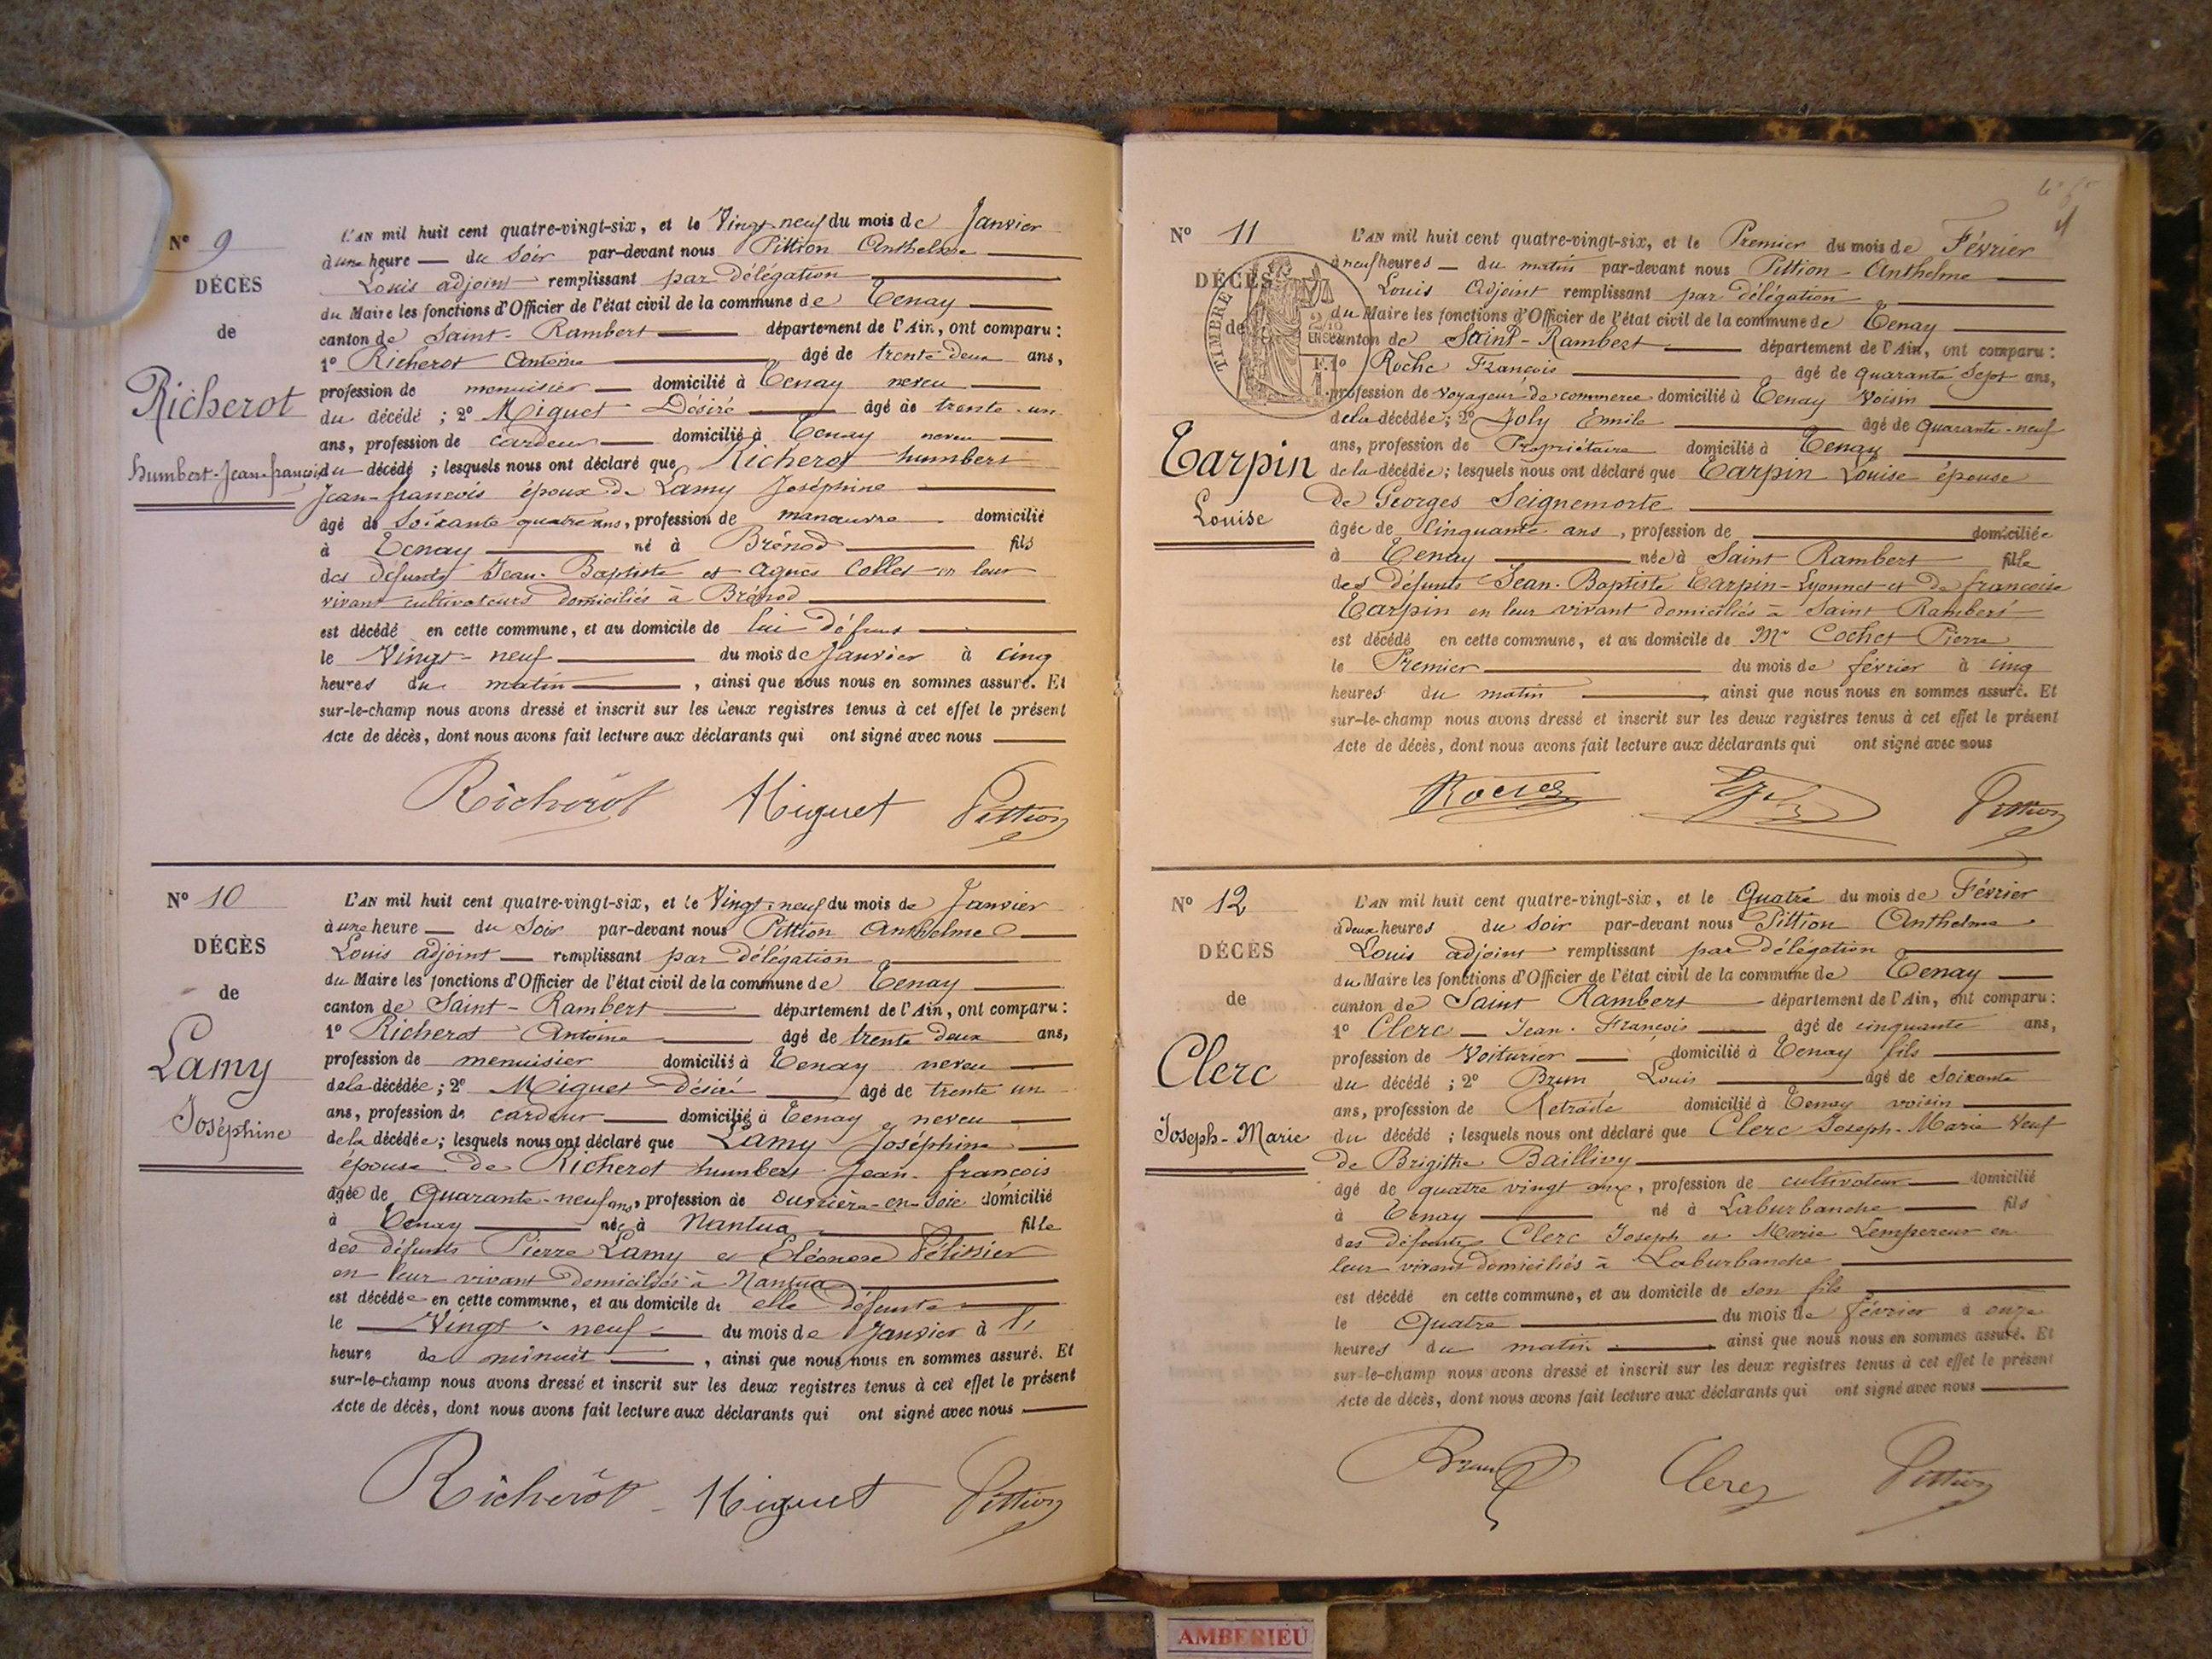 Nº 9
DÉCÈS
de
Richerot
humbert-Jean-françois
L'AN mil huit cent quatre-vingt-six, et le Vingt neuf du mois de Janvier
à une heure du Soir par-devant nous Pittion Anthelme
Louis adjoint remplissant par délégation
du Maire les fonctions d'Officier de l'état civil de la commune de Tenay
canton de Saint-Rambert département de l'Ain, ont comparu :
1º Richerot Antoine âgé de trente deux ans,
profession de menuisier domicilié à Tenay neveu
du décédé ; 2º Miguet Désiré âgé de trente-un
ans, profession de cardeur domicilié à Tenay neveu
du décédé ; lesquels nous ont déclaré que Richerot humbert
Jean-françois époux de Lamy Joséphine
âgé de Soixante quatre ans, profession de manœuvre domicilié
à Tenay né à Brénod fils
des défunts Jean-Baptiste et Agnès Collet en leur
vivant cultivateurs domiciliés à Brénod
est décédé en cette commune, et au domicile de lui défunt
le Vingt-neuf du mois de Janvier à cinq
heures du matin, ainsi que nous nous en sommes assuré. Et
sur-le-champ nous avons dressé et inscrit sur les deux registres tenus à cet effet le présent
Acte de décès, dont nous avons fait lecture aux déclarants qui ont signé avec nous
Richerot Miguet Pittion
Nº 10
DÉCÈS
de
Lamy
Joséphine
L'AN mil huit cent quatre-vingt-six, et le Vingt-neuf du mois de Janvier
à une heure du Soir par-devant nous Pittion Anthelme
Louis adjoint remplissant par délégation
du Maire les fonctions d'Officier de l'état civil de la commune de Tenay
canton de Saint-Rambert département de l'Ain, ont comparu :
1º Richerot Antoine âgé de trente deux ans,
profession de menuisier domicilié à Tenay neveu
de la décédée ; 2º Miguet Désiré âgé de trente un
ans, profession de cardeur domicilié à Tenay neveu
de la décédée ; lesquels nous ont déclaré que Lamy Joséphine
épouse de Richerot humbert Jean-françois
âgée de Quarante-neuf ans, profession de ouvrière-en-Soie domicilié
à Tenay née à Nantua fille
des défunts Pierre Lamy et Eléonore Pélissier
en leur vivant domiciliés à Nantua
est décédée en cette commune, et au domicile de elle défunte
le Vingt-neuf du mois de Janvier à l'
heure de minuit, ainsi que nous nous en sommes assuré. Et
sur-le-champ nous avons dressé et inscrit sur les deux registres tenus à cet effet le présent
Acte de décès, dont nous avons fait lecture aux déclarants qui ont signé avec nous
Richerot Miguet Pittion
Nº 11
DÉCÈS
de
TIMBRE
Tarpin
Louise
L'AN mil huit cent quatre-vingt-six, et le Premier du mois de Février
à neuf heures du matin par-devant nous Pittion Anthelme
Louis Adjoint remplissant par délégation
du Maire les fonctions d'Officier de l'état civil de la commune de Tenay
canton de Saint-Rambert département de l'Ain, ont comparu :
1º Roche François âgé de quarante Sept ans,
profession de voyageur de commerce domicilié à Tenay Voisin
de la décédée ; 2º Joly Emile âgé de quarante-neuf
ans, profession de Propriétaire domicilié à Tenay
de la décédée ; lesquels nous ont déclaré que Tarpin Louise épouse
de Georges Seignemorte
âgée de Cinquante ans, profession de domiciliée
à Tenay née à Saint Rambert fille
des défunts Jean-Baptiste Tarpin-Lyonnet et de françoise
Tarpin en leur vivant domiciliés à Saint Rambert
est décédé en cette commune, et au domicile de Mr Cochet Pierre
le Premier du mois de février à cinq
heures du matin, ainsi que nous nous en sommes assuré. Et
sur-le-champ nous avons dressé et inscrit sur les deux registres tenus à cet effet le présent
Acte de décès, dont nous avons fait lecture aux déclarants qui ont signé avec nous
Roche Pittion
Nº 12
DÉCÈS
de
Clerc
Joseph-Marie
L'AN mil huit cent quatre-vingt-six, et le Quatre du mois de Février
à deux heures du soir par-devant nous Pittion Anthelme
Louis adjoint remplissant par délégation
du Maire les fonctions d'Officier de l'état civil de la commune de Tenay
canton de Saint Rambert département de l'Ain, ont comparu :
1º Clerc Jean-François âgé de cinquante ans,
profession de Voiturier domicilié à Tenay fils
du décédé ; 2º Brun Louis âgé de Soixante
ans, profession de Retraité domicilié à Tenay voisin
du décédé ; lesquels nous ont déclaré que Clerc Joseph-Marie Veuf
de Brigithe Baillivy
âgé de quatre vingt onze, profession de cultivateur domicilié
à Tenay né à Laburbanche fils
des défunts Clerc Joseph et Marie Lempereur en
leur vivant domiciliés à Laburbanche
est décédé en cette commune, et au domicile de son fils
le Quatre du mois de février à onze
heures du matin, ainsi que nous nous en sommes assuré. Et
sur-le-champ nous avons dressé et inscrit sur les deux registres tenus à cet effet le présent
Acte de décès, dont nous avons fait lecture aux déclarants qui ont signé avec nous
Brun Clerc Pittion
AMBERIEU